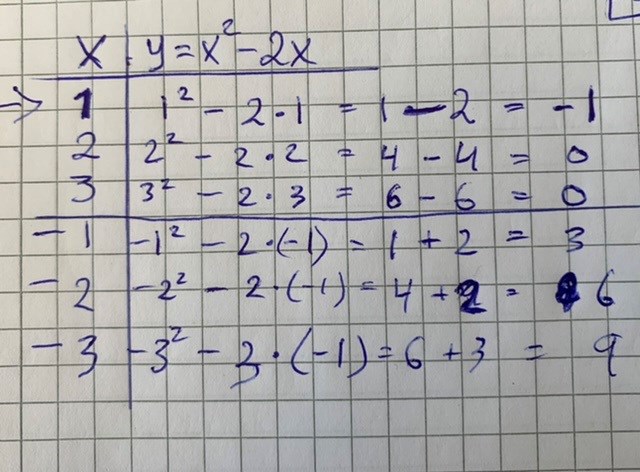 x | y = x² - 2x
⇒ 1 | 1² - 2·1 = 1 - 2 = -1
2 | 2² - 2·2 = 4 - 4 = 0
3 | 3² - 2·3 = 6 - 6 = 0
-1 | -1² - 2·(-1) = 1 + 2 = 3
-2 | -2² - 2·(-1) = 4 + 2 = 6
-3 | -3² - 3·(-1) = 6 + 3 = 9